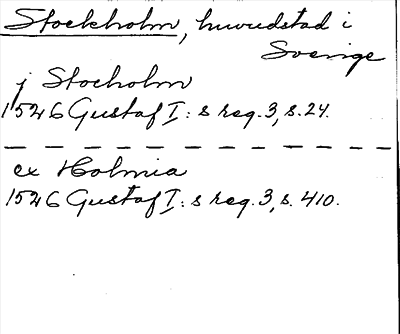 Stockholm, huvudstad i
Sverige
j Stocholm
1526 Gustaf I:s reg. 3, s. 24.
ex Holmia
1526 Gustaf I:s reg. 3, s. 410.